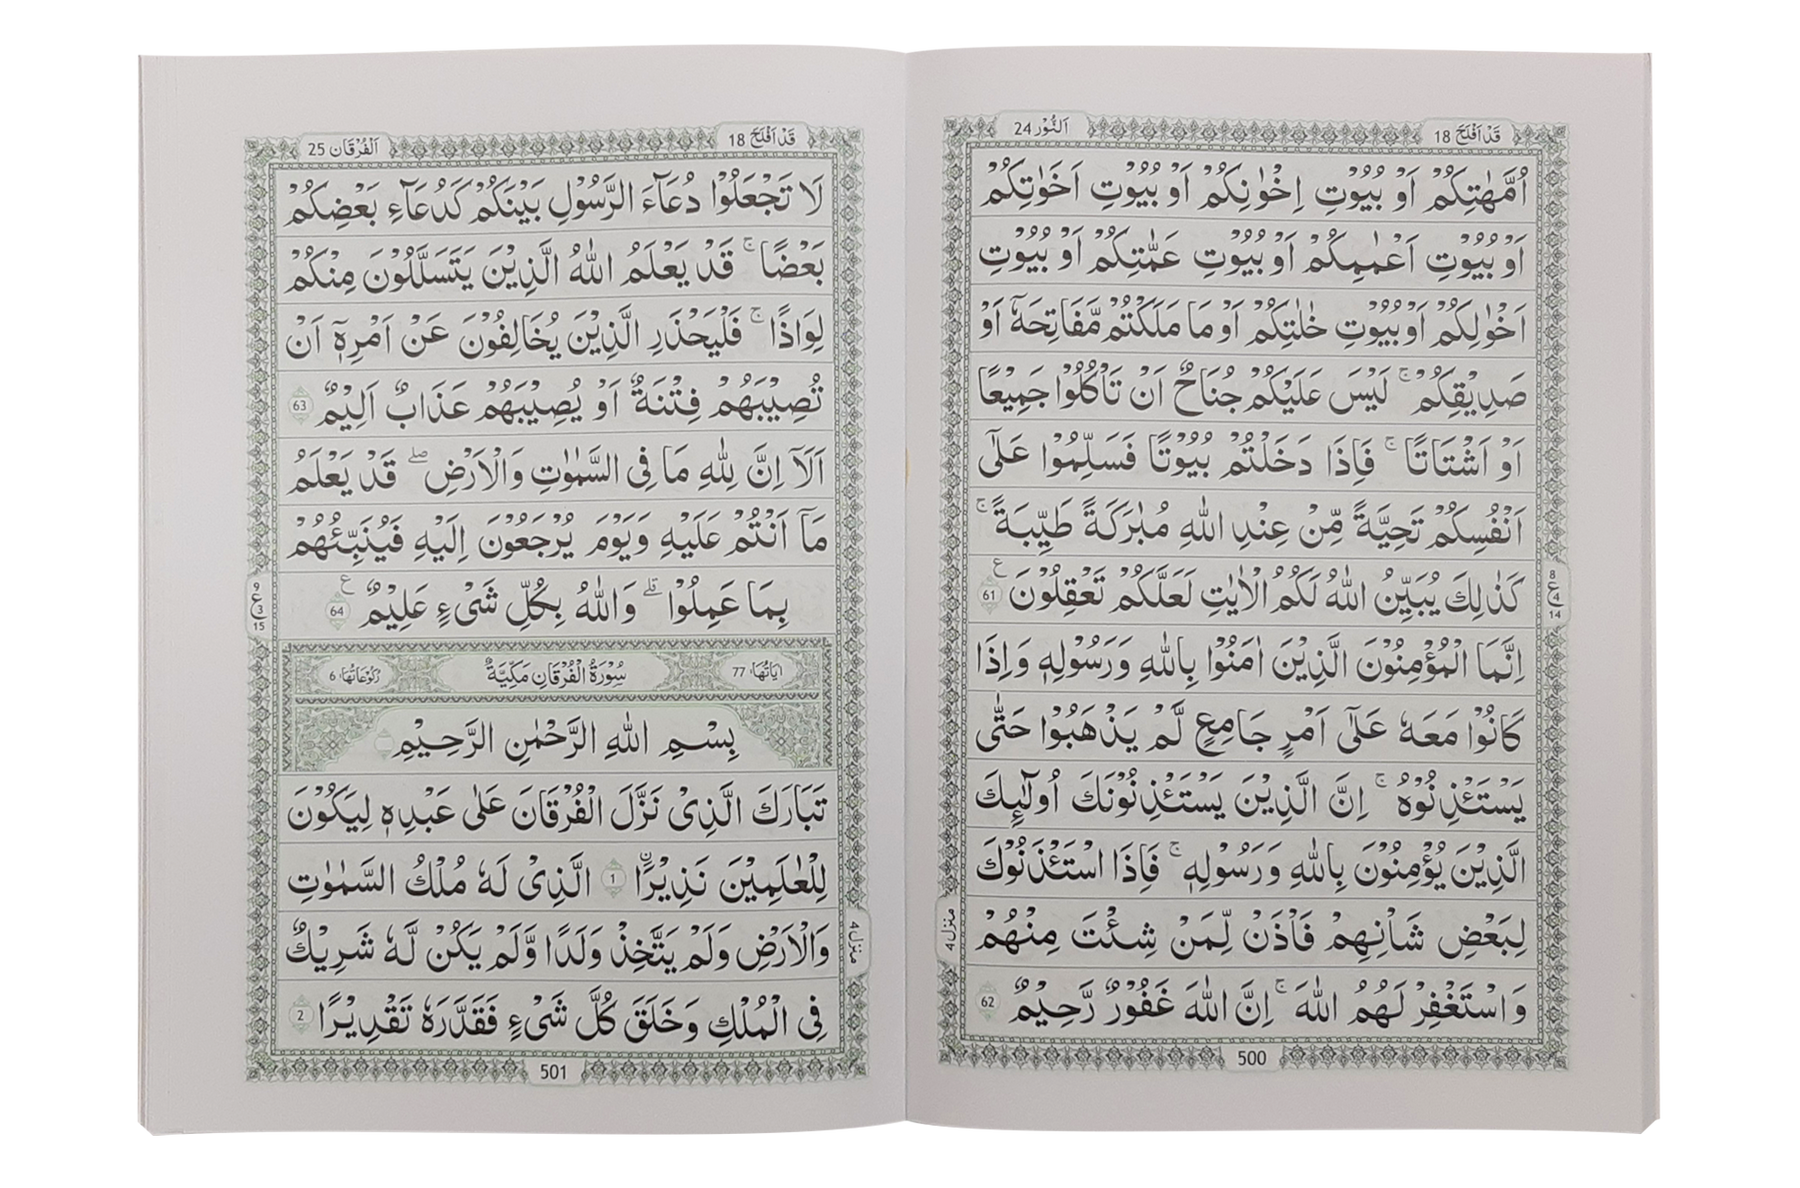 اَلنُّوْر 24
قَدْ اَفْلَحَ 18
اُمَّهٰتِكُمْ اَوْ بُيُوْتِ اِخْوَانِكُمْ اَوْ بُيُوْتِ اَخَوٰتِكُمْ
اَوْ بُيُوْتِ اَعْمَامِكُمْ اَوْ بُيُوْتِ عَمّٰتِكُمْ اَوْ بُيُوْتِ
اَخْوَالِكُمْ اَوْ بُيُوْتِ خٰلٰتِكُمْ اَوْ مَا مَلَكْتُمْ مَّفَاتِحَهٗٓ اَوْ
صَدِيْقِكُمْ ۚ لَيْسَ عَلَيْكُمْ جُنَاحٌ اَنْ تَاْكُلُوْا جَمِيْعًا
اَوْ اَشْتَاتًا ۚ فَاِذَا دَخَلْتُمْ بُيُوْتًا فَسَلِّمُوْا عَلٰٓى
اَنْفُسِكُمْ تَحِيَّةً مِّنْ عِنْدِ اللّٰهِ مُبٰرَكَةً طَيِّبَةً ۚ
كَذٰلِكَ يُبَيِّنُ اللّٰهُ لَكُمُ الْاٰيٰتِ لَعَلَّكُمْ تَعْقِلُوْنَ ع 61
8 ع 4 14
اِنَّمَا الْمُؤْمِنُوْنَ الَّذِيْنَ اٰمَنُوْا بِاللّٰهِ وَرَسُوْلِهٖ وَاِذَا
كَانُوْا مَعَهٗ عَلٰٓى اَمْرٍ جَامِعٍ لَّمْ يَذْهَبُوْا حَتّٰى
يَسْتَـْٔذِنُوْهُ ۚ اِنَّ الَّذِيْنَ يَسْتَـْٔذِنُوْنَكَ اُولٰٓئِكَ
الَّذِيْنَ يُؤْمِنُوْنَ بِاللّٰهِ وَرَسُوْلِهٖ ۚ فَاِذَا اسْتَـْٔذَنُوْكَ
لِبَعْضِ شَاْنِهِمْ فَاْذَنْ لِّمَنْ شِئْتَ مِنْهُمْ
وَاسْتَغْفِرْ لَهُمُ اللّٰهَ ۚ اِنَّ اللّٰهَ غَفُوْرٌ رَّحِيْمٌ 62
منزل 4
500
اَلْفُرْقَان 25
قَدْ اَفْلَحَ 18
لَا تَجْعَلُوْا دُعَآءَ الرَّسُوْلِ بَيْنَكُمْ كَدُعَآءِ بَعْضِكُمْ
بَعْضًا ۚ قَدْ يَعْلَمُ اللّٰهُ الَّذِيْنَ يَتَسَلَّلُوْنَ مِنْكُمْ
لِوَاذًا ۚ فَلْيَحْذَرِ الَّذِيْنَ يُخَالِفُوْنَ عَنْ اَمْرِهٖٓ اَنْ
تُصِيْبَهُمْ فِتْنَةٌ اَوْ يُصِيْبَهُمْ عَذَابٌ اَلِيْمٌ 63
اَلَآ اِنَّ لِلّٰهِ مَا فِى السَّمٰوٰتِ وَالْاَرْضِ ۖ قَدْ يَعْلَمُ
مَآ اَنْتُمْ عَلَيْهِ وَيَوْمَ يُرْجَعُوْنَ اِلَيْهِ فَيُنَبِّئُهُمْ
بِمَا عَمِلُوْا ۗ وَاللّٰهُ بِكُلِّ شَىْءٍ عَلِيْمٌ ع 64
9 ع 3 15
اٰيَاتُهَا، 77
سُوْرَةُ الْفُرْقَانِ مَكِّيَّةٌ
رُكُوْعَاتُهَا، 6
بِسْمِ اللّٰهِ الرَّحْمٰنِ الرَّحِيْمِ
تَبَارَكَ الَّذِىْ نَزَّلَ الْفُرْقَانَ عَلٰى عَبْدِهٖ لِيَكُوْنَ
لِلْعٰلَمِيْنَ نَذِيْرًا 1 الَّذِىْ لَهٗ مُلْكُ السَّمٰوٰتِ
وَالْاَرْضِ وَلَمْ يَتَّخِذْ وَلَدًا وَّلَمْ يَكُنْ لَّهٗ شَرِيْكٌ
فِى الْمُلْكِ وَخَلَقَ كُلَّ شَىْءٍ فَقَدَّرَهٗ تَقْدِيْرًا 2
منزل 4
501